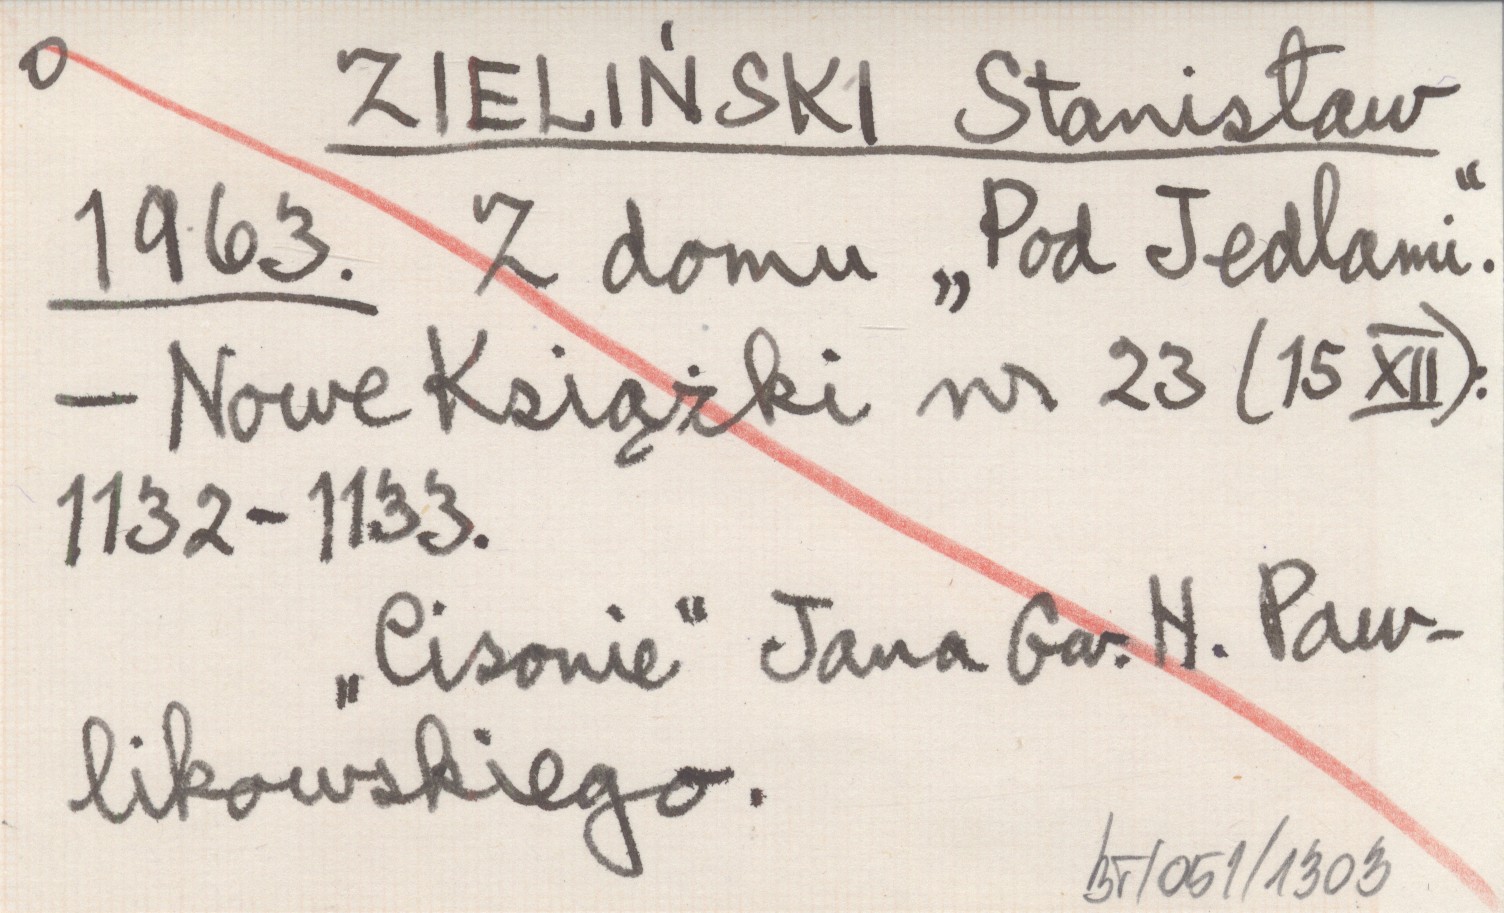 o ZIELIŃSKI Stanisław
1963. Z domu „Pod Jedlami."
— Nowe Książki nr 23 (15 XII):
1132-1133.
„Cisonie" Jana Gw. H. Paw-
likowskiego.
/051/1303